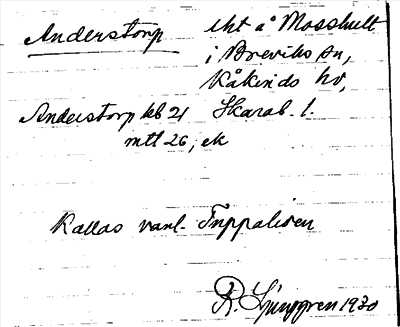 Anderstorp
lht å Mosshult
i Breviks sn,
Kåkinds hd,
Skarab. l.
Anderstorp kb 21
mtl 26, ek
Kallas vanl.
R. Ljunggren 1930